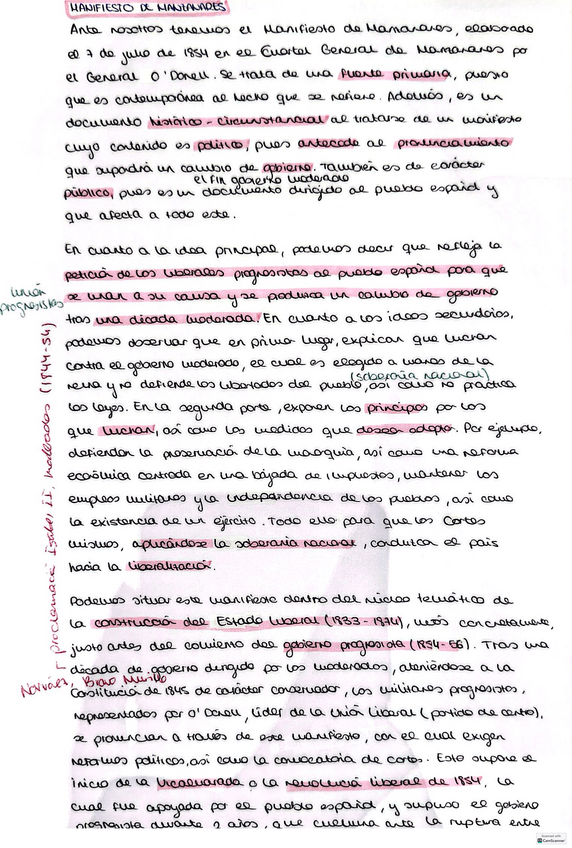 MANIFIESTO DE MANZANARES
Ante nosotros tenemos el Manifiesto de Manzanares, elaborado
el 7 de julio de 1854 en el Cuartel General de Manzanares por
el General O'Donell. Se trata de una fuente primaria, puesto
que es contemporánea al hecho que se refiere. Además, es un
documento histórico-circunstancial al tratarse de un manifiesto
cuyo contenido es político, pues antecede al pronunciamiento
que supondrá un cambio de gobierno. También es de carácter
el fin gobierno moderado
público, pues es un documento dirigido al pueblo español y
que afecta a todo este.
En cuanto a la idea principal, podemos decir que refleja la
petición de los liberales progresistas al pueblo español para que
se unan a su causa y se produzca un cambio de gobierno
tras una década moderada. En cuanto a las ideas secundarias,
unión
progresistas
podemos observar que en primer lugar, explican que luchan
contra el gobierno moderado, el cual es elegido a manos de la
(soberanía nacional)
reina y no defiende las libertades del pueblo, así como no practica
las leyes. En la segunda parte, exponen los principios por los
que luchan, así como las medidas que desean adoptar. Por ejemplo,
defienden la preservación de la monarquía, así como una reforma
económica centrada en una bajada de impuestos, mantener los
empleos militares y la independencia de los pueblos, así como
la existencia de un ejército. Todo ello para que las Cortes
mismas, aplicándose la soberanía nacional, conduzca el país
hacia la liberalización.
proclamació Isabel II, moderados (1844-54)
Podemos situar este manifiesto dentro del núcleo temático de
la construcción del Estado liberal (1833-1874), más concretamente,
justo antes del comienzo del gobierno progresista (1854-56). Tras una
década de gobierno dirigido por los moderados, ateniéndose a la
Narváez, Bravo Murillo
Constitución de 1845 de carácter conservador, los militares progresistas,
representados por O'Donell, líder de la Unión Liberal (partido de centro),
se pronuncian a través de este manifiesto, con el cual exigen
reformas políticas, así como la convocatoria de cortes. Esto supone el
inicio de la Vicalvarada o la revolución liberal de 1854, la
cual fue apoyada por el pueblo español, y supuso el gobierno
progresista durante 2 años, que culmina ante la ruptura entre
CamScanner